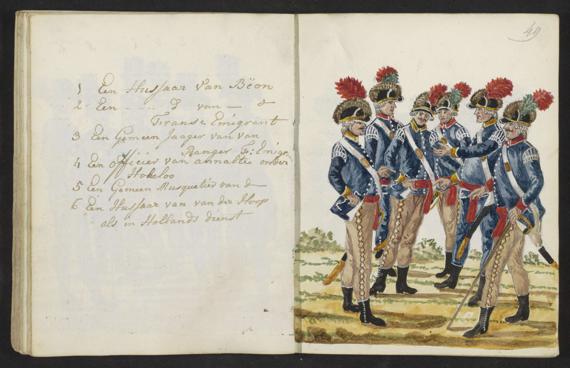 49
1 Een Hussaar van Bëon
2 Een — " — J van — &
Franse Emigrant
3 Een Gemeen Jaager van van
Ranger F: Emigr
4 Een Officier van
Hokeloo
5 Een Gemeen Musquetier van d—
6 Een Hussaar van van der Hoop
als in Hollands dienst